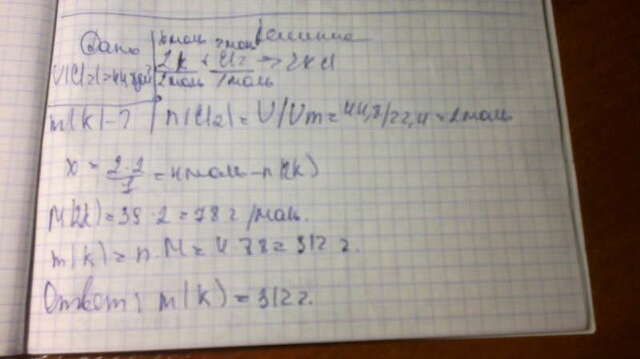 Дано Решение
x моль 2 моль
V(Cl2)=44,8 дм³ 2K + Cl2 -> 2KCl
2 моль 1 моль
m(K)-? n(Cl2)= V/Vm=44,8/22,4=2моль
x = 2·2/1 = 4 моль - n(2K)
M(2K)=39·2=78 г/моль.
m(K)= n·M=4·78=312 г.
Ответ: m(K)=312г.